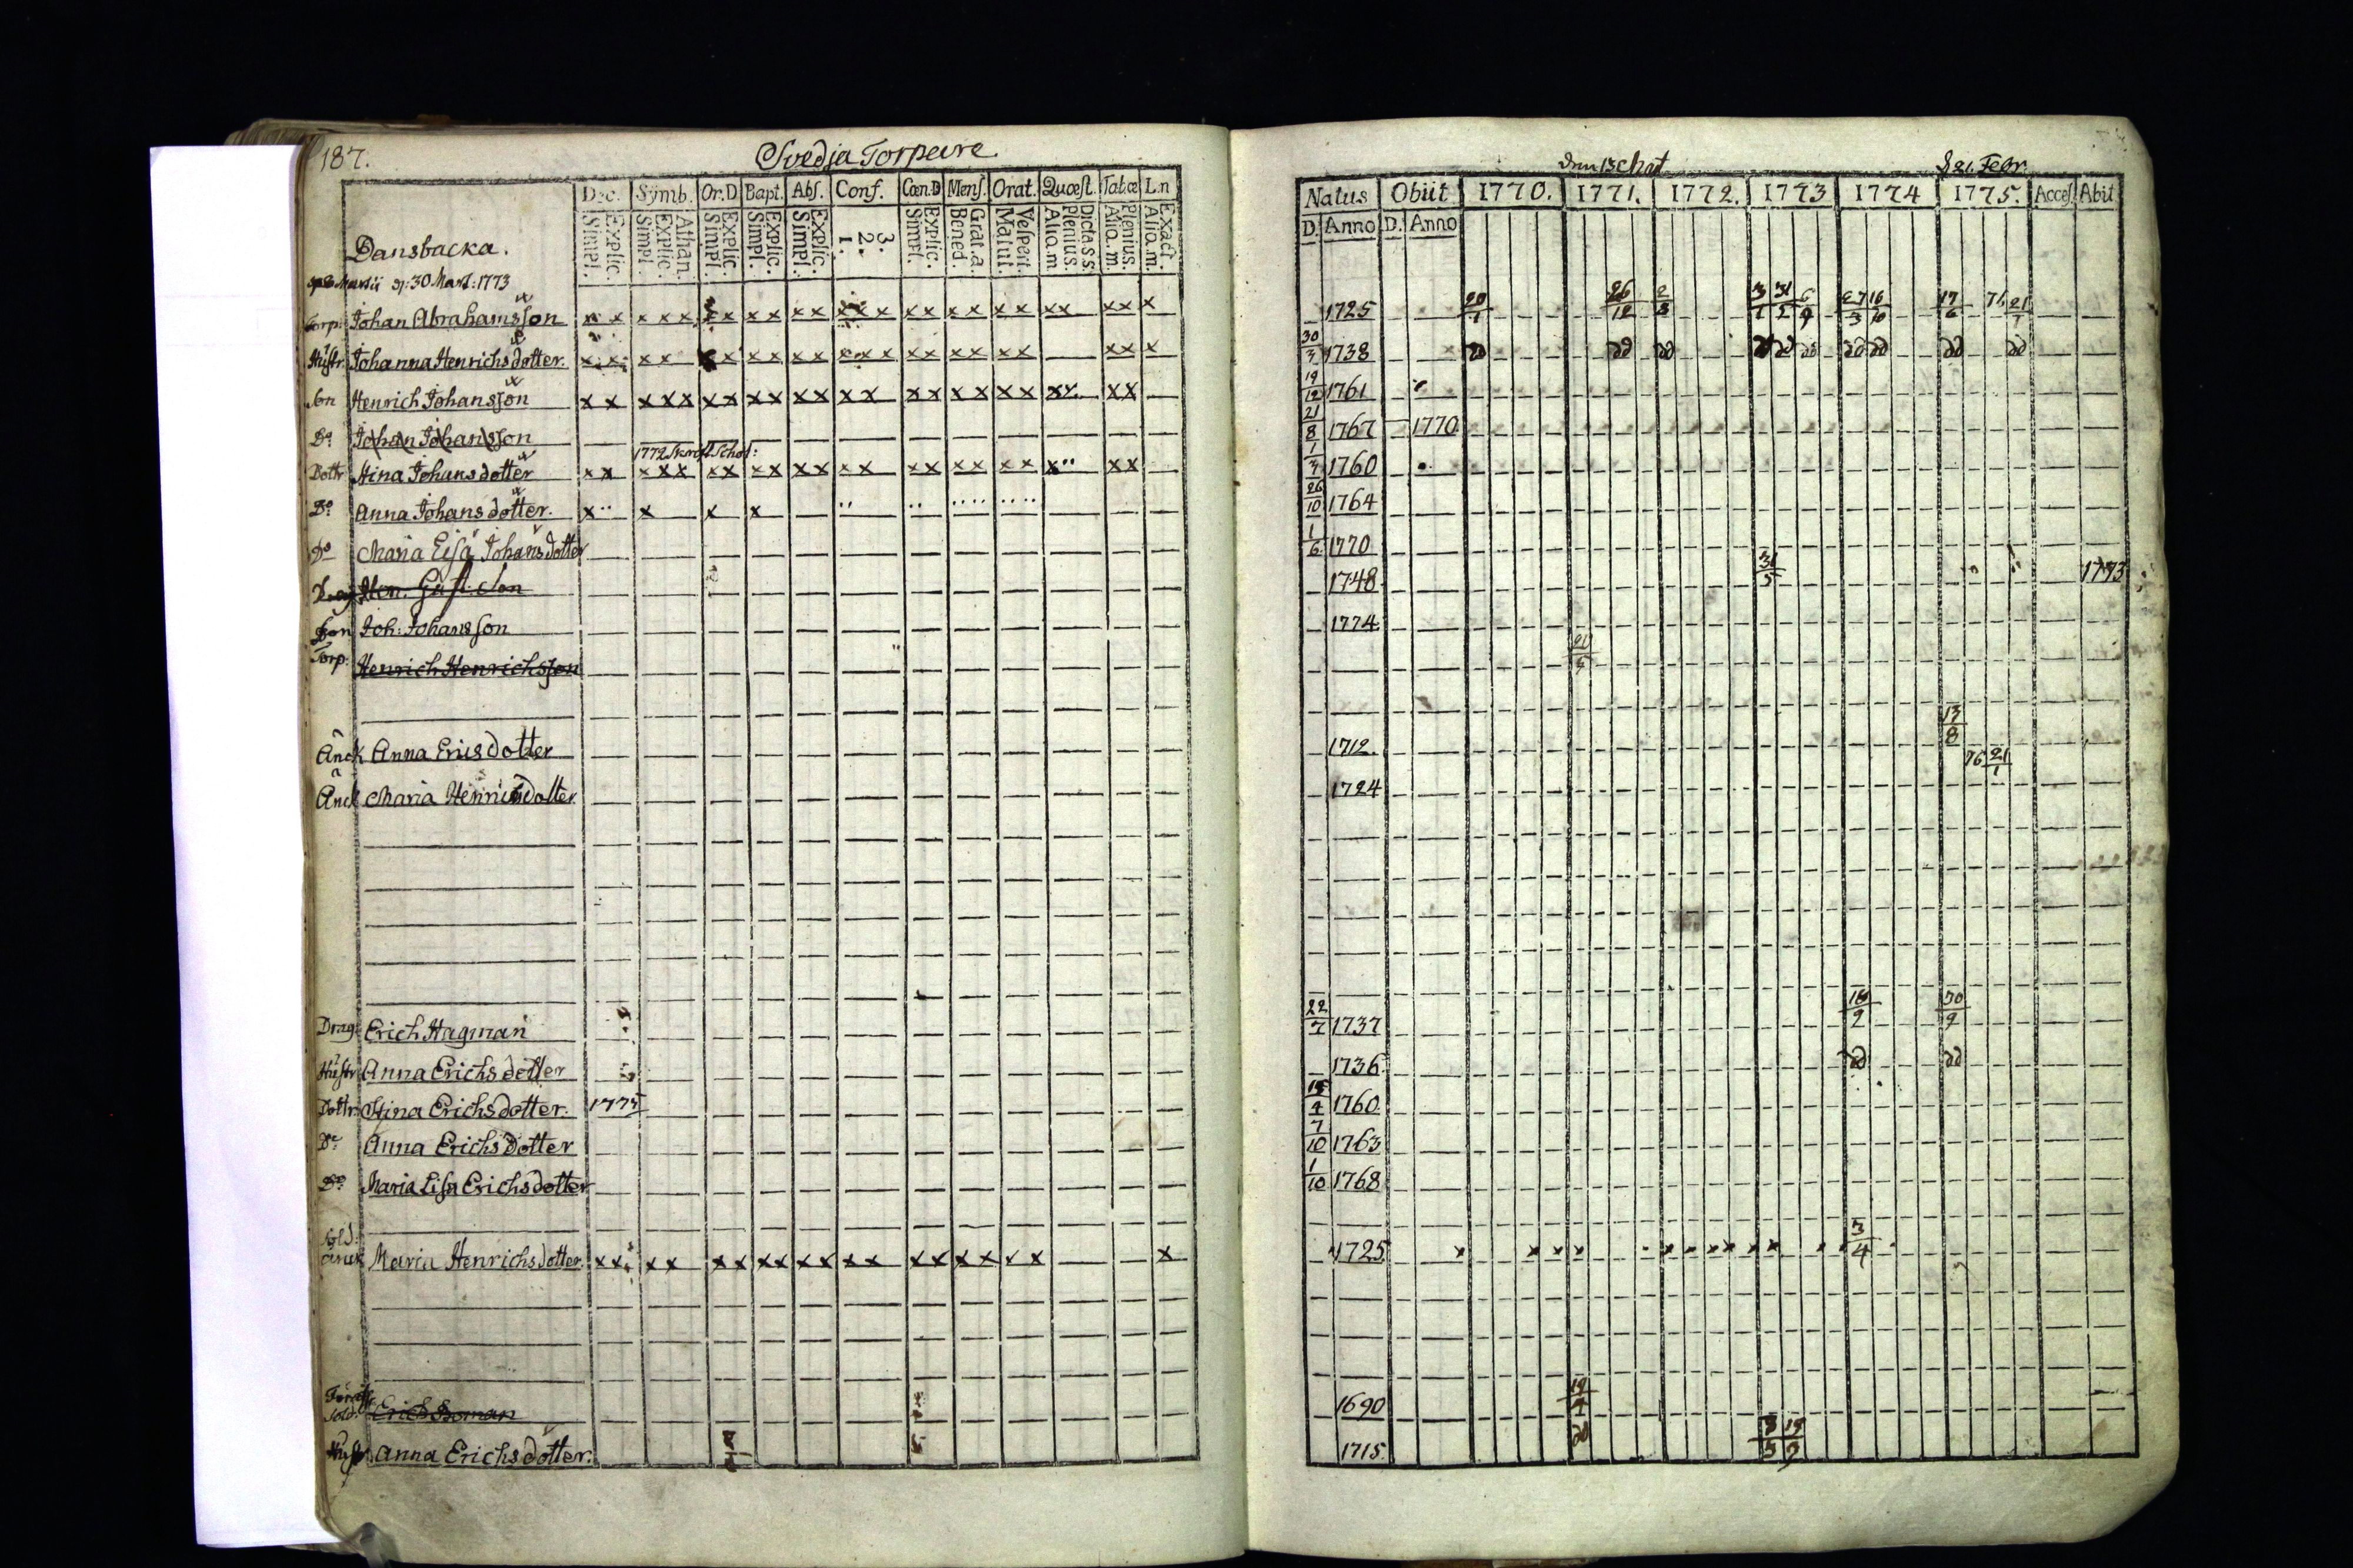 187.
Svedja Torpare
Dec. Symb. Or.D Bapt. Abs. Conf. Cœn.D Mens. Orat. Quæst. Tabœ L.n
Explic. Simpl. Athan. Explic. Simpl. Explic. Simpl. Explic. Simpl. Explic. Simpl. 3. 2. 1. Explic. Simpl. Grat.a. Bened. Vespert. Matut. Dicta s s. Plenius. Aliq.m Plenius. Aliq.m. Exact. Aliq.m.
Dansbacka.
30 Mart: 1773
Torp. Johan Abrahamsson x x x x x x x x x x x x x x x x x x x x x x x x x
Hustr. Johanna Henrichsdotter. x x x x x x x x x x x x x x x x x x x x x
Son Henrich Johansson x x x x x x x x x x x x x x x x x x x x x x x
Do Johan Johansson
1772
Dottr Stina Johansdotter x x x x x x x x x x x x x x x x x x x x x x
Do Anna Johansdotter. x x x x
Do Maria Lisa Johansdotter
Hen. Gust. Son
Son Joh: Johansson
Torp. Henrich Henrichsson
Änck Anna Ericsdotter
Änck Maria Henricsdotter
Drag: Erich Hagman
Hustr Anna Erichsdotter
Dottr: Stina Erichsdotter. 1775
Do Anna Erichsdotter
Do Maria Lisa Erichsdotter
Sold: änck Maria Henrichsdotter. x x x x x x x x x x x x x x x x x x x
Sold: Erich Boman
Hustr Anna Erichsdotter.
den 13 21. Febr.
Natus Obiit 1770. 1771. 1772. 1773 1774 1775. Acces. Abit
D. Anno D. Anno
1725 20/1 26/12 2/8 17/6 76 21/1
30/3 1738 do do do do do do do do do do
19/12 1761
21/8 1767 1770
1/3 1760
26/10 1764
1/6 1770
1748 31/5 1773
1774
1712. 13/8
76 21/1
1724
22/7 1737 18/9 30/9
1736 do do
15/4 1760
7/10 1763
1/10 1768
1725 x x x x x x x x x x 3/4
1690 19/4
do
1715. 8/5 19/9